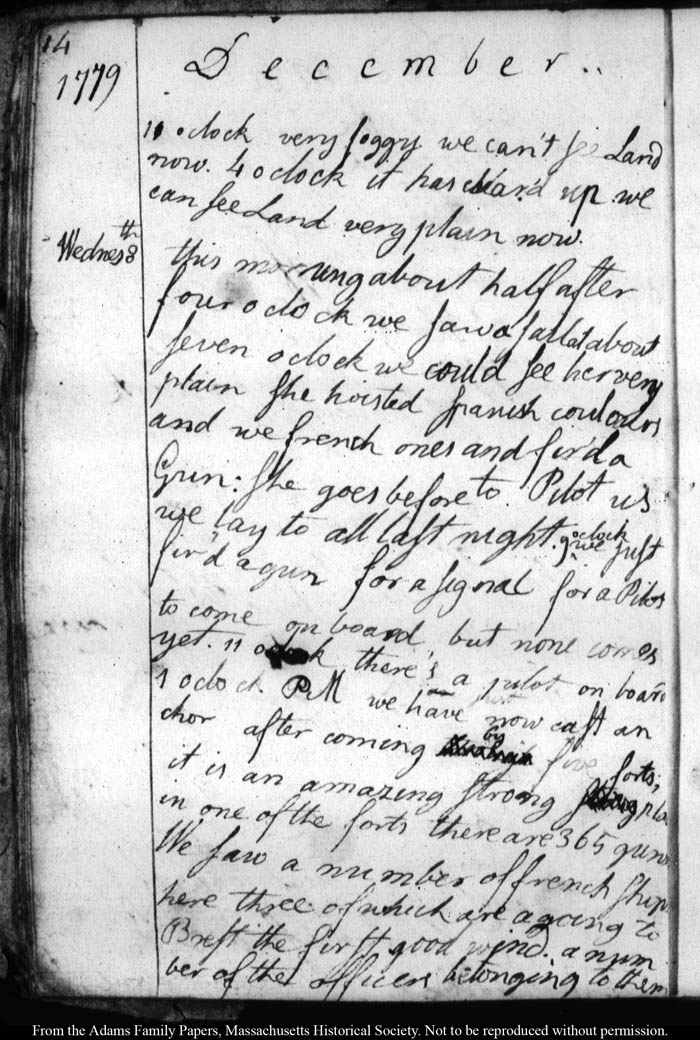 14
1779
December..
11 oclock very foggy we can't see Land
now. 4 oclock it has clear'd up we
can see Land very plain now.
Wednes 8th
this morning about half after
four oclock we saw a sail at about
seven oclock we could see her very
plain she hoisted spanish coulours
and we french ones and fir'd a
Gun: she goes before to Pilot us
we lay to all last night. 9 oclock we just
fir'd a gun for a signal for a Pilot
to come on board, but none comes
yet. 11 oclock there's a pilot on board
1 oclock PM we have just now cast an
chor after coming by five forts;
it is an amazing strong pla
in one of the forts there are 365 guns
We saw a number of french ships
here three of which are agoing to
Brest the first good wind. a num
ber of the officers belonging to them
From the Adams Family Papers, Massachusetts Historical Society. Not to be reproduced without permission.